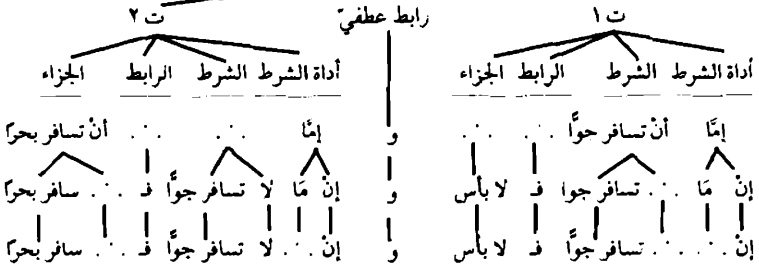 ت ١ رابط عطفيّ ت ٢
أداة الشرط الشرط الرابط الجزاء أداة الشرط الشرط الرابط الجزاء
إمَّا أنْ تسافر جوًّا .·. .·. و إمَّا .·. .·. أنْ تسافر بحرًا
إنْ مَا .·. تسافر جوا فـ لا بأس و إنْ مَا لا تسافر جوًّا فـ .·. سافر بحرًا
إنْ .·. .·. تسافر جوًّا فـ لا بأس و إنْ .·. لا تسافر جوًّا فـ .·. سافر بحرًا